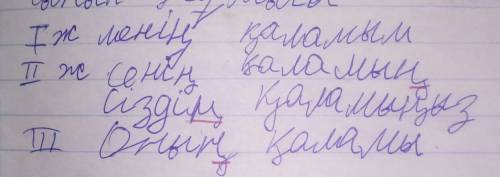 І ж менің қаламым
ІІ ж сенің қаламың
сіздің қаламыңыз
ІІІ Оның қаламы.